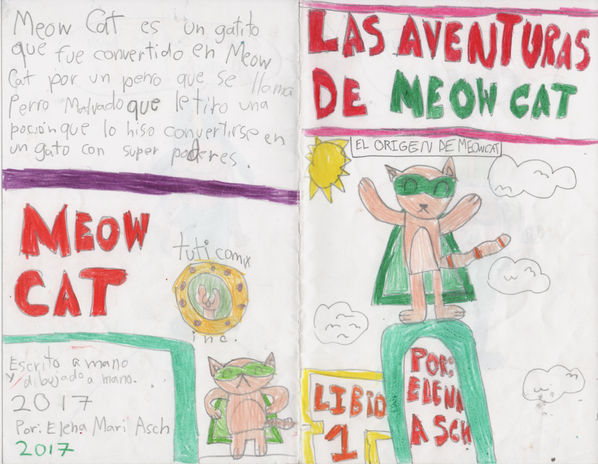 Meow Cat es un gatito
que fue convertido en Meow
Cat por un perro que se llama
Perro Malvado que le tiro una
poción que lo hiso convertirse en
un gato con super poderes.
MEOW
CAT
tuti comix
inc.
Escrito a mano
y dibujado a mano.
2017
Por: Elena Mari Asch
2017
LAS AVENTURAS
DE MEOW CAT
EL ORIGEN DE MEOWCAT
LIBRO
1
POR:
ELENA
ASCH